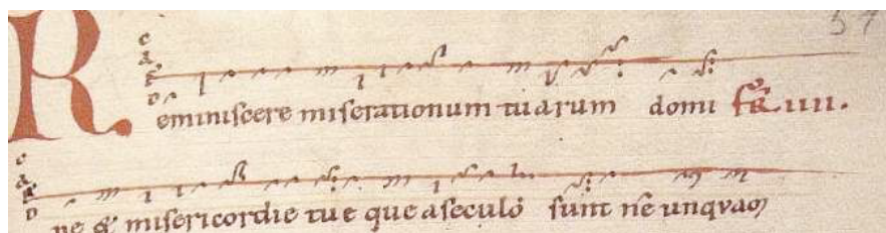 57
Reminiscere miserationum tuarum domi fr̄ iiii.
ne & misericordie tue que a seculo sunt nē unqvaɔ